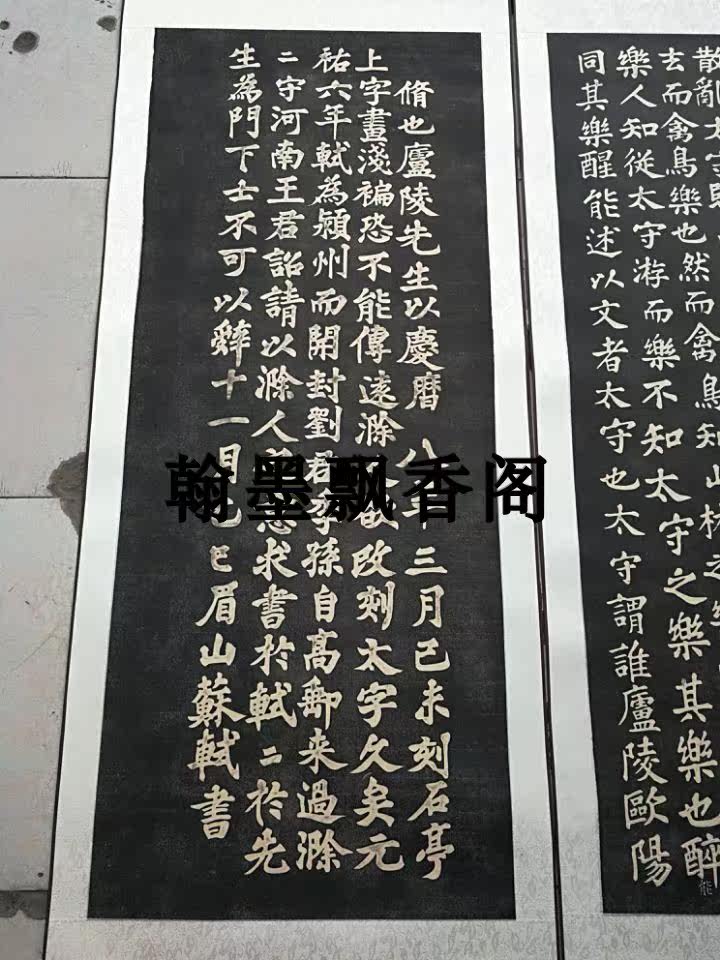 散亂太守
玄而禽鳥樂也然而禽鳥知山林之
樂人知從太守游而樂不知太守之樂其樂也醉
能
同其樂醒能述以文者太守也太守謂誰廬陵歐陽
脩也廬陵先生以慶曆八年三月己未刻石亭
上字畫淺褊恐不能傳遠滁人欲改刻太字久矣元
祐六年軾為潁州而開封劉君季孫自高郵来過滁
二守河南王君詔請以滁人之意求書於軾二於先
生為門下士不可以辤十一月乙巳眉山蘇軾書
翰墨飘香阁